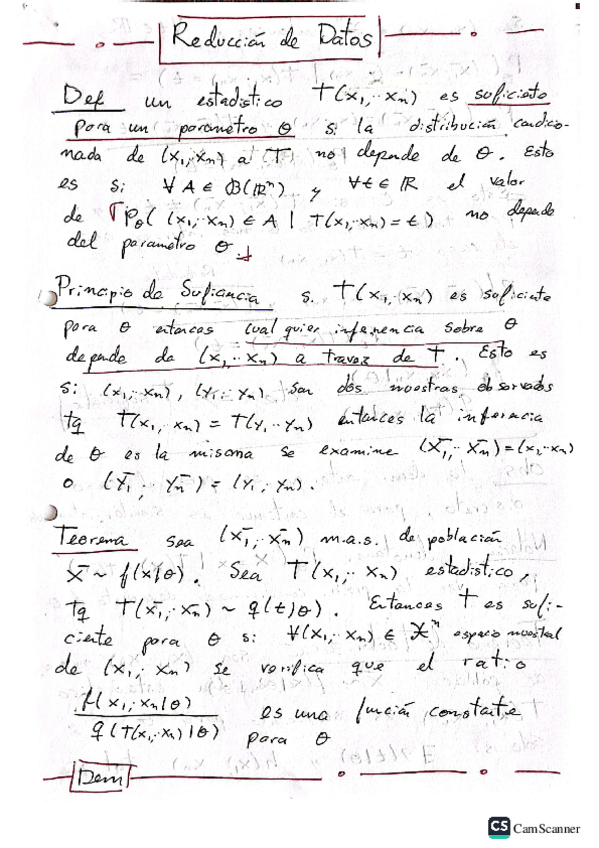 Reducción de Datos
Def un estadistico T(x₁,·· xₙ) es suficiente
para un parametro θ si la distribución condicio-
nada de (x₁,·· xₙ) a T no depende de θ. Esto
es si ∀ A ∈ B(ℝⁿ) y ∀t ∈ ℝ el valor
de P_θ( (x₁,·· xₙ) ∈ A | T(x₁,·· xₙ) = t ) no depende
del parametro θ.
Principio de Suficiencia si T(x₁,·· xₙ) es suficiente
para θ entonces cualquier inferencia sobre θ
depende de (x₁,·· xₙ) a travez de T. Esto es
si (x₁,·· xₙ), (y₁,·· yₙ) son dos muestras observadas
tq T(x₁,·· xₙ) = T(y₁,·· yₙ) entonces la inferencia
de θ es la misma se examine (X₁,·· Xₙ) = (x₁,·· xₙ)
o (Y₁,·· Yₙ) = (y₁,·· yₙ).
Teorema sea (X₁,·· Xₙ) m.a.s. de población
X ~ f(x|θ). Sea T(x₁,·· xₙ) estadistico,
tq T(X₁,·· Xₙ) ~ q(t|θ). Entonces T es sufi-
ciente para θ si ∀(x₁,·· xₙ) ∈ 𝒳ⁿ espacio muestral
de (x₁,·· xₙ) se verifica que el ratio
f(x₁,·· xₙ|θ)
es una función constante
q(T(x₁,·· xₙ)|θ)
para θ
Dem
CS CamScanner